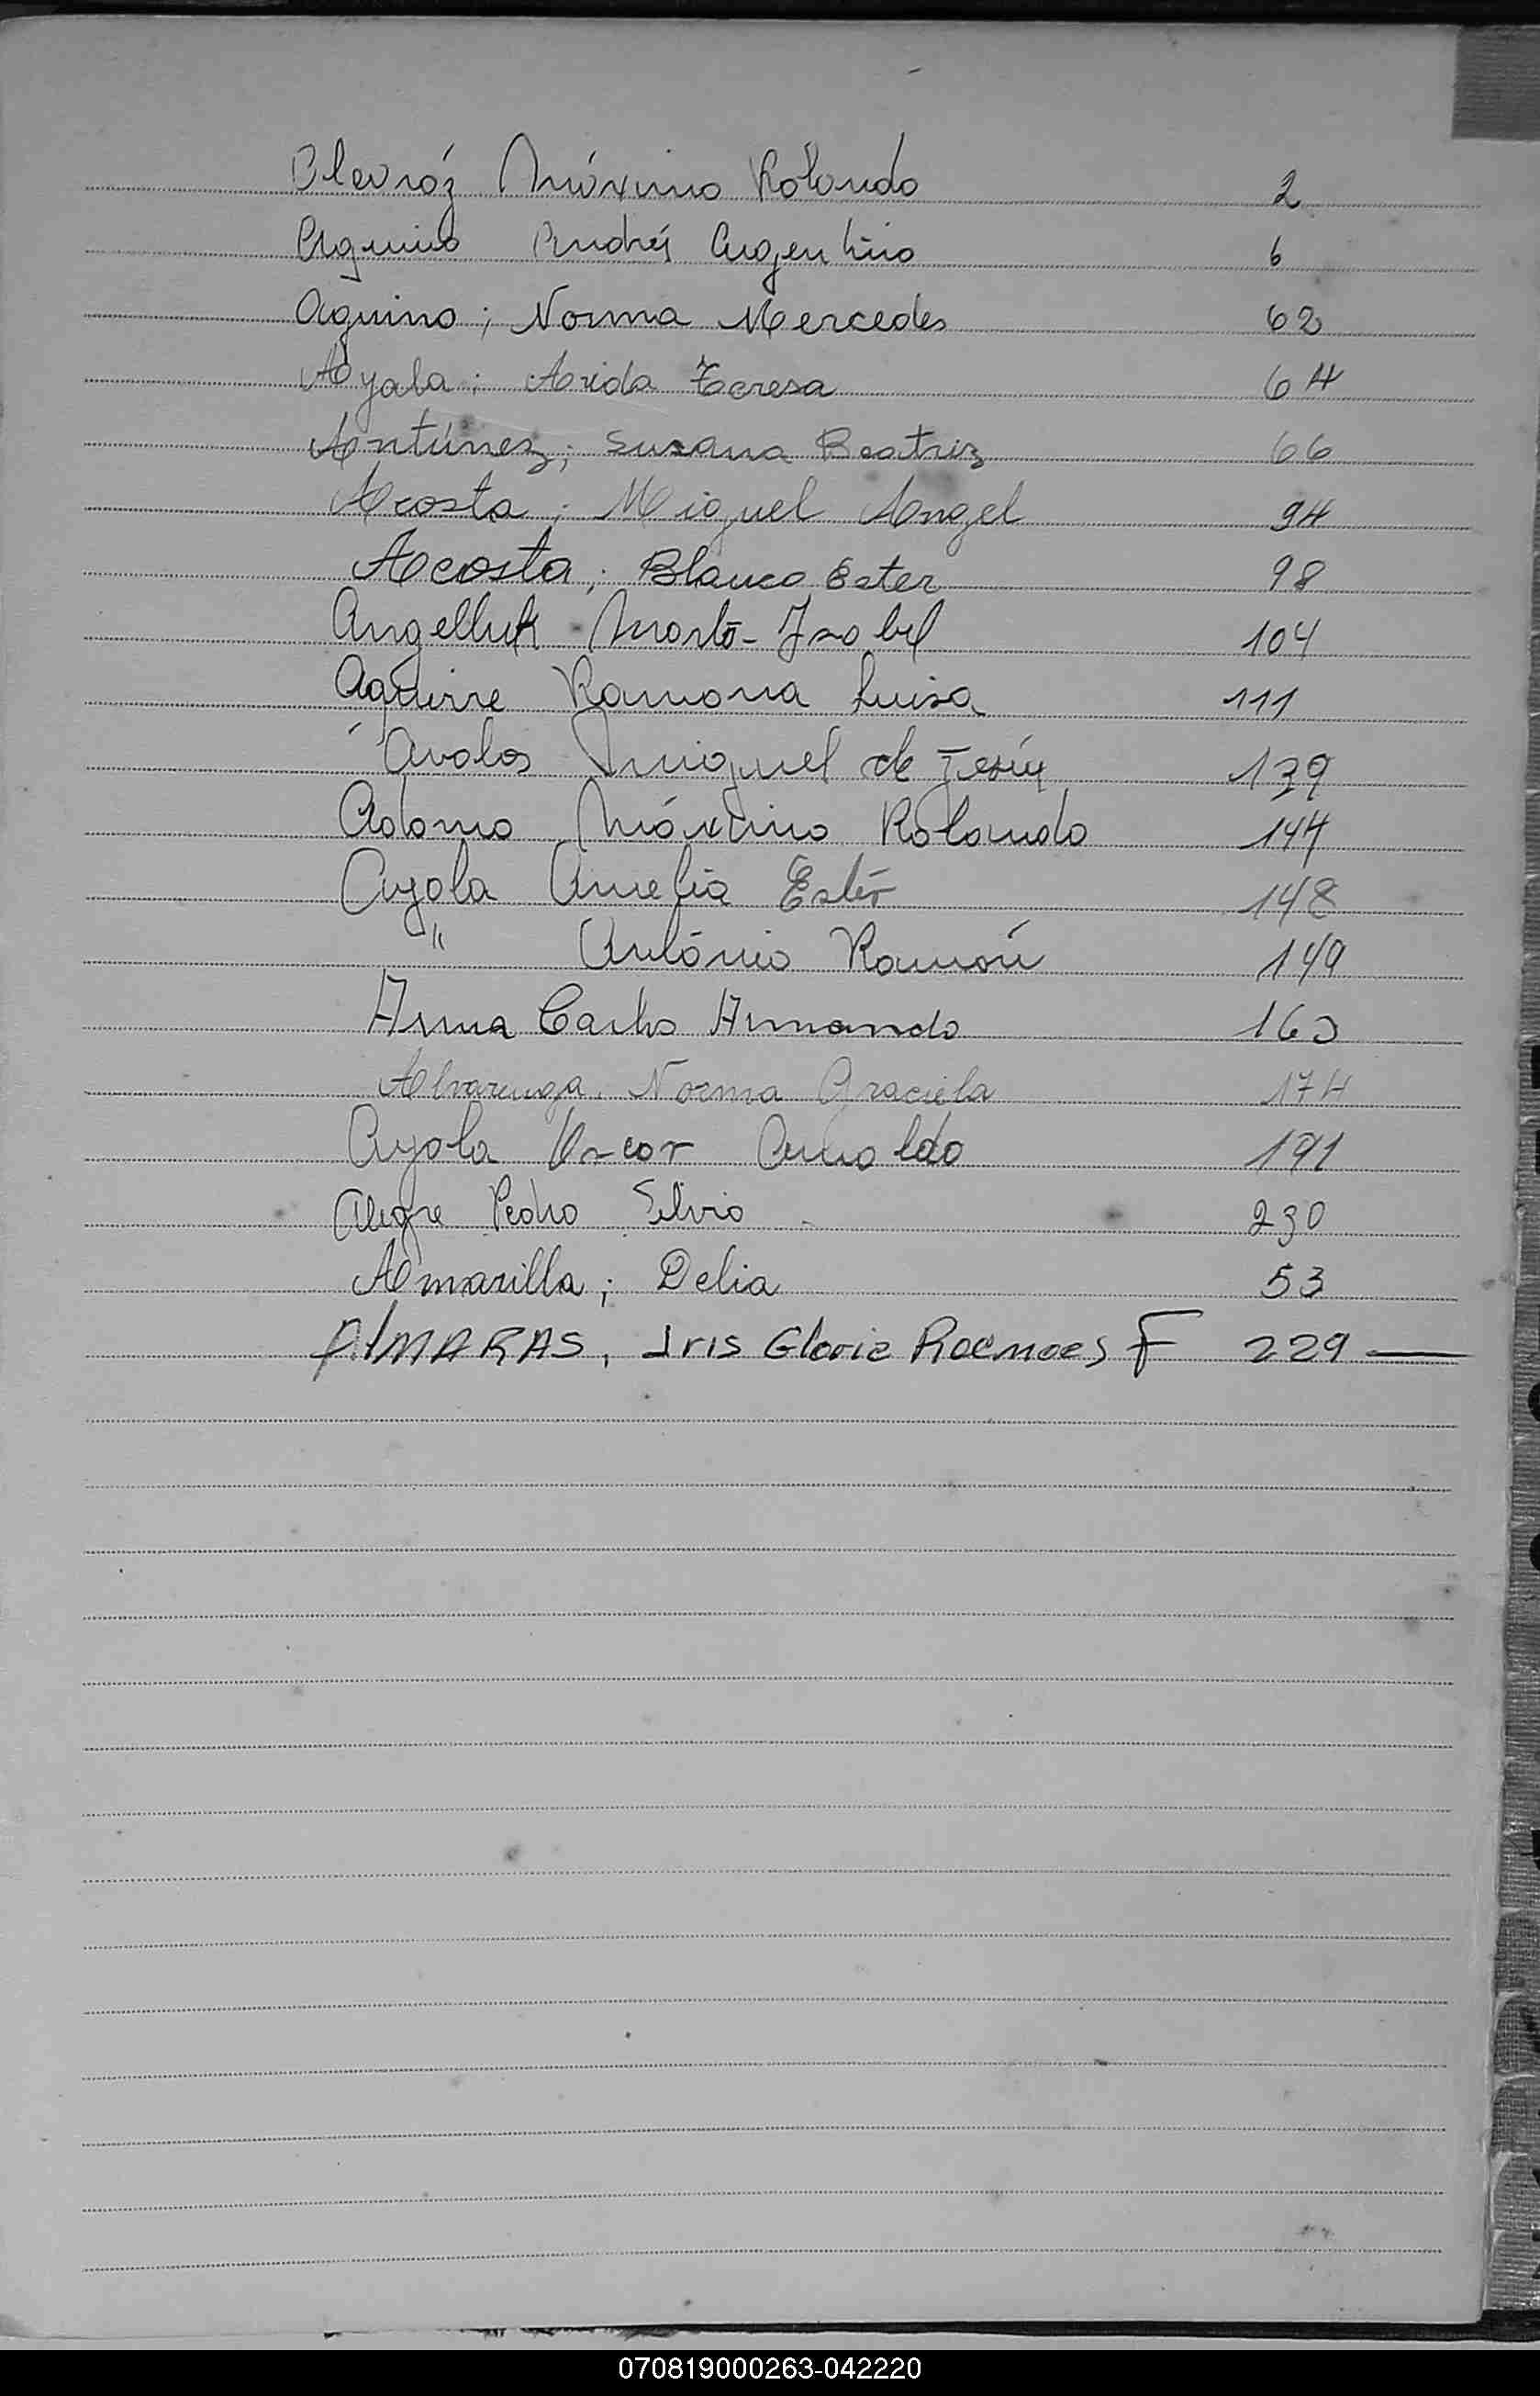 Alcaróz Máximo Rolando 2
Aquino Andrés Argentino 6
Aquino; Norma Mercedes 62
Ayala; Arida Teresa 64
Antúnez; Susana Beatriz 66
Acosta; Miguel Angel 94
Acosta; Blanca Ester 98
Angelluk Marta-Isabel 104
Aguirre Ramona Luisa 111
Avalos Miguel de Jesús 139
Adorno Máximo Rolando 144
Ayala Amelia Ester 148
" Antonio Ramón 149
Carlos Armando 163
Alvarenga, Norma Graciela 174
Ayala Oscar Arnoldo 191
Alegre Pedro Silvio 230
Amarilla; Delia 53
AlMARAS, Iris Gloria F 229
070819000263-042220